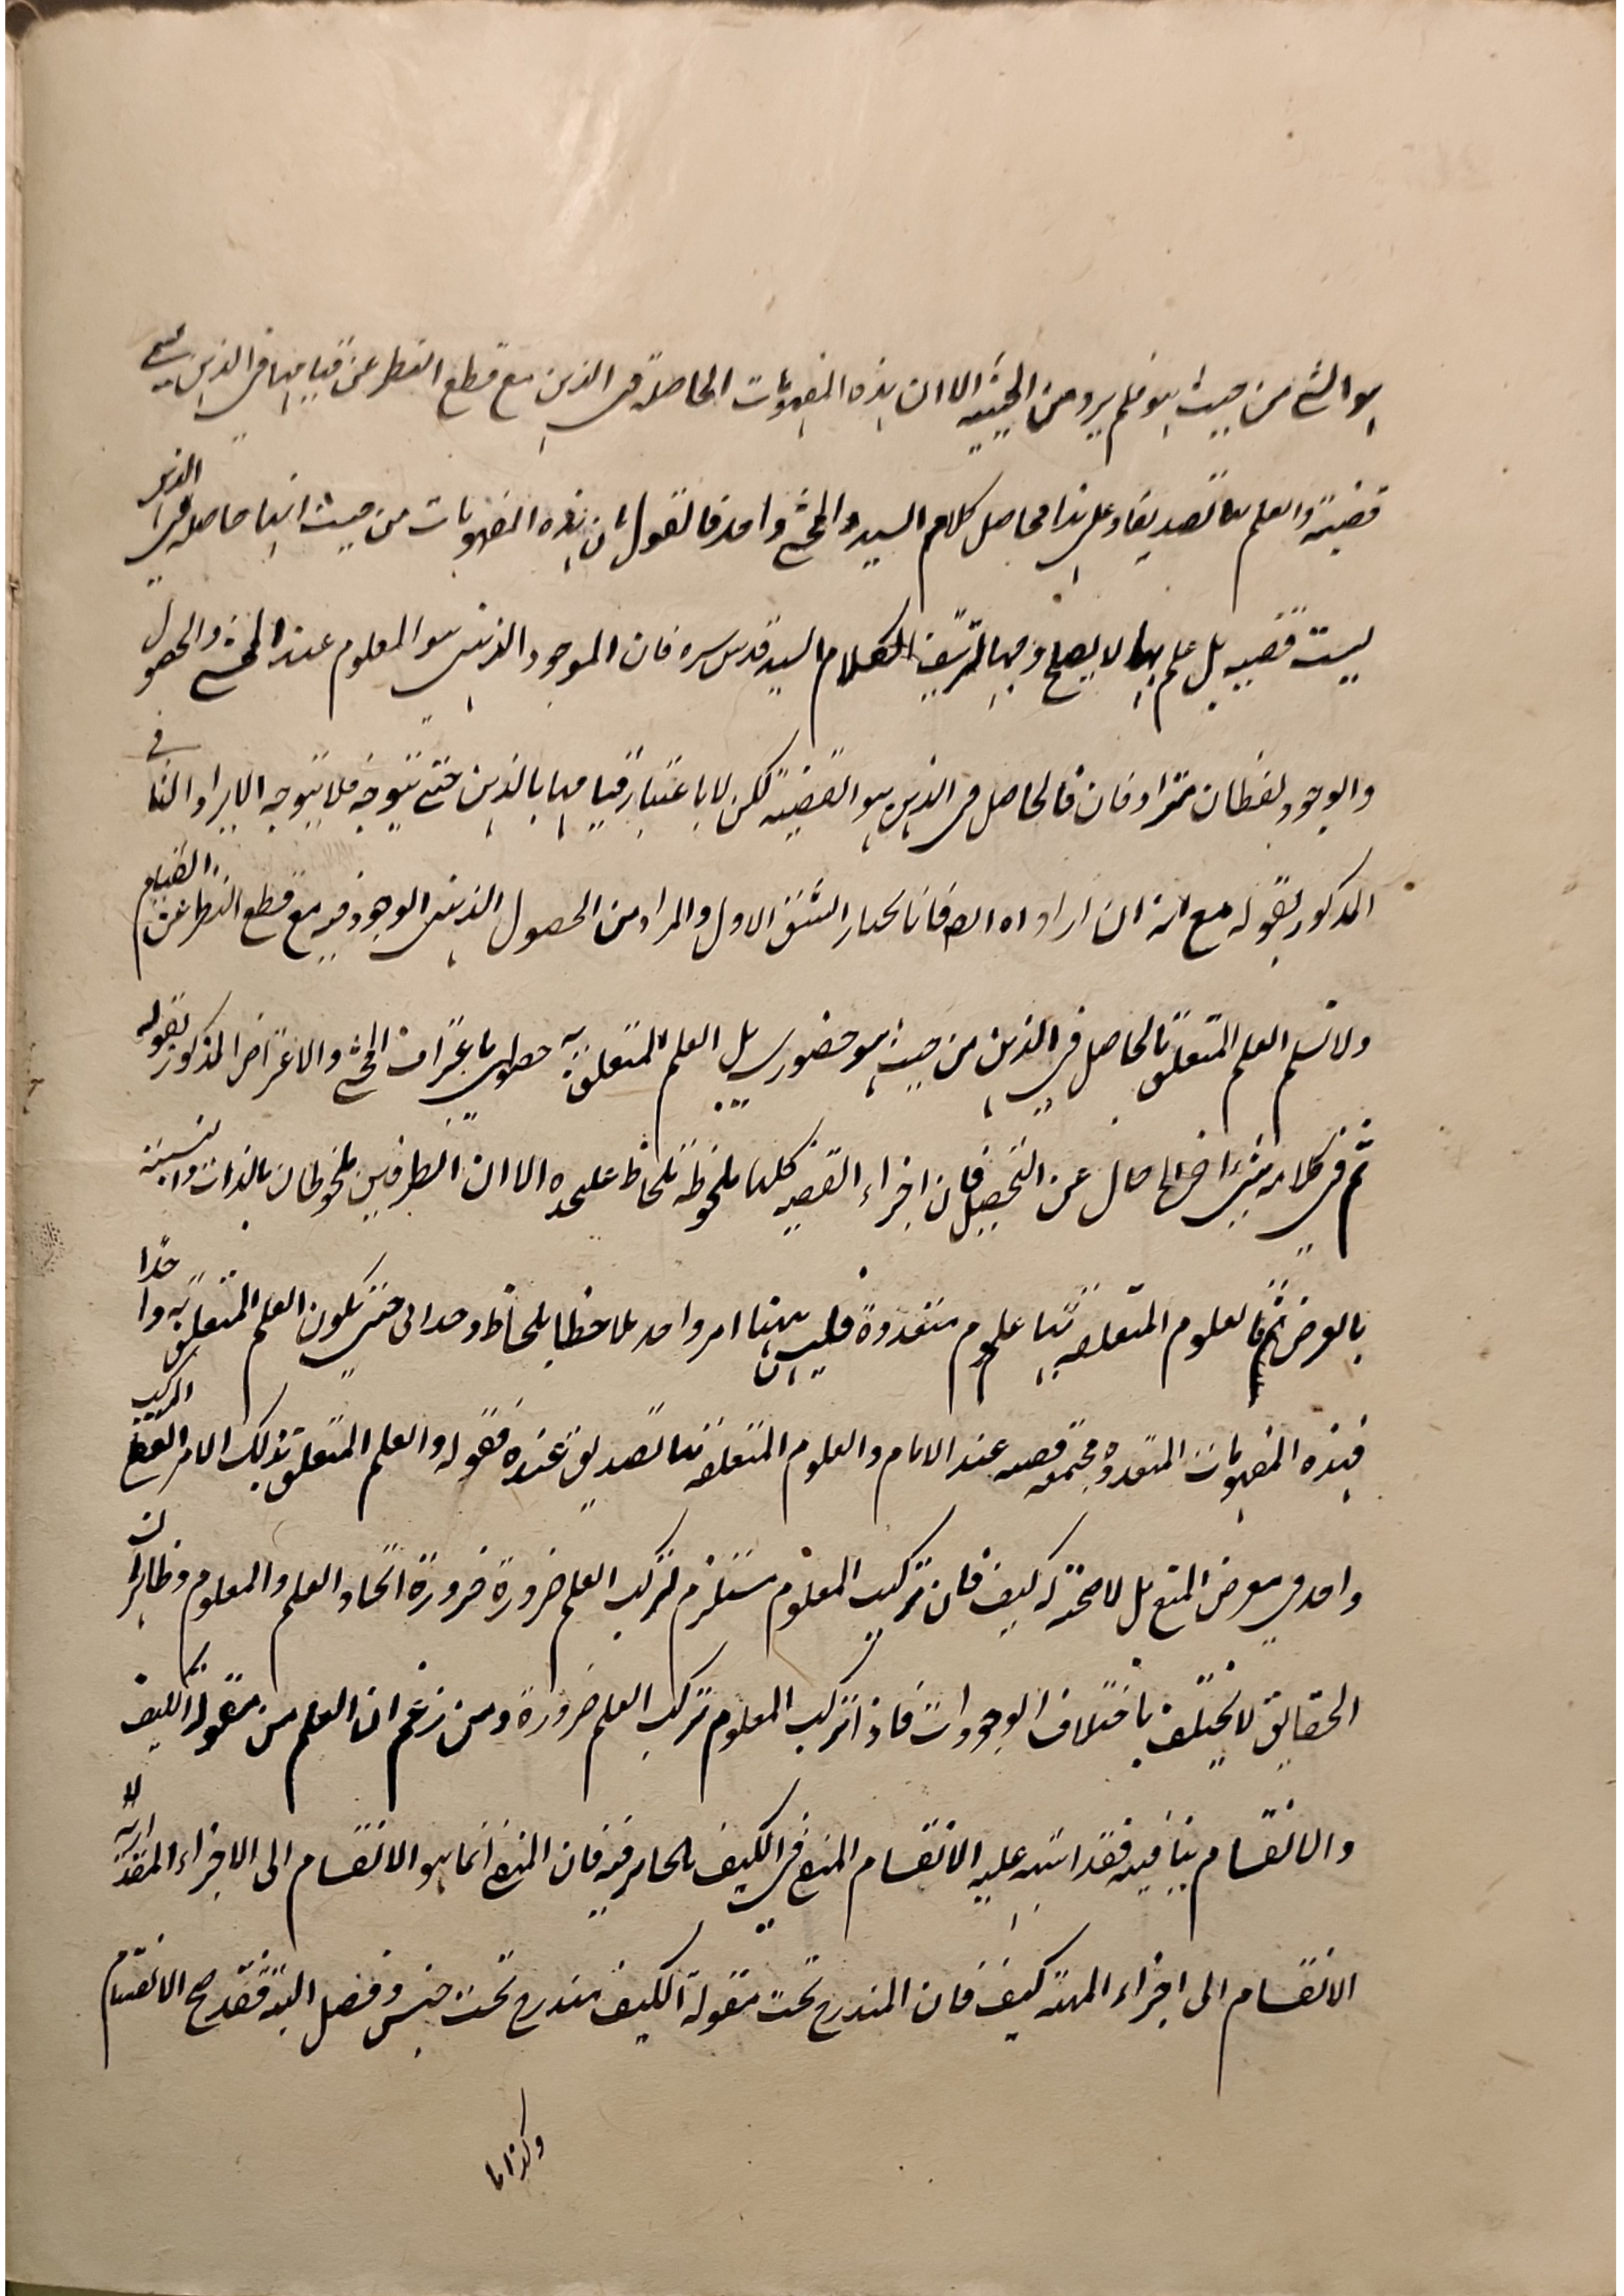 هو الشئ من حيث هو فلم يرد من الحيثيه الا ان هذه المفهومات الحاصلة فى الذهن مع قطع النظر عن قيامها فى الذهن يسمى
قضية والعلم بها تصديقا وعلى هذا فحاصل كلام السيد والمحشى واحد فالقول بان هذه المفهومات من حيث انها حاصلة فى الذهن
ليست قضيه بل علم بها لا يصلح وجها لتزييف الكلام السيد قدس سره فان الموجود الذهنى هو المعلوم عند المحشى والحصول
والوجود لفظان مترادفان فالحاصل فى الذهن هو القضيه لكن لا باعتبار قيامها بالذهن حتى يتوجه فلا يتوجه الايراد الثانى
المذكور بقوله مع انه ان اراد انا نختار الشق الاول والمراد من الحصول الذهنى الوجود فيه مع قطع النظر عن القيام
ولا نسلم العلم المتعلق بالحاصل فى الذهن من حيث هو حضورى بل العلم المتعلق به حصولى باعتراف المحشى والاعتراض المذكور بقوله
ثم فى كلامه شئ اخر خال عن التحصيل فان اجزاء القضيه كلها ملحوظة بلحاظ عليحده الا ان الطرفين ملحوظان بالذات والنسبة
بالعرض فالعلوم المتعلقه بها علوم متعددة فليس ههنا امر واحد ملاحظا بلحاظ وحدانى حتى يكون العلم المتعلق به واحدا
فهذه المفهومات المتعدده مجتمعه قضيه عند الامام والعلوم المتعلقه بها تصديق عنده فقوله والعلم المتعلق بذلك الامر المركب
واحد فى معرض المنع بل لا صحة له كيف فان تركيب المعلوم مستلزم لتركب العلم ضرورة ضرورة اتحاد العلم والمعلوم وظاهر ان
الحقايق لا يختلف باختلاف الوجودات فاذا تركب المعلوم تركب العلم ضرورة ومن زعم ان العلم من مقولة الكيف
والانقسام ينافيه فقد اشتبه عليه الانقسام المنفى فى الكيف بالجايز فيه فان المنفى انما هو الانقسام الى الاجزاء المقدارية لا
الانقسام الى اجزاء المهية كيف فان المندرج تحت مقولة الكيف مندرج تحت جنس وفصل البتة فقد صح الانقسام
وكذا ما